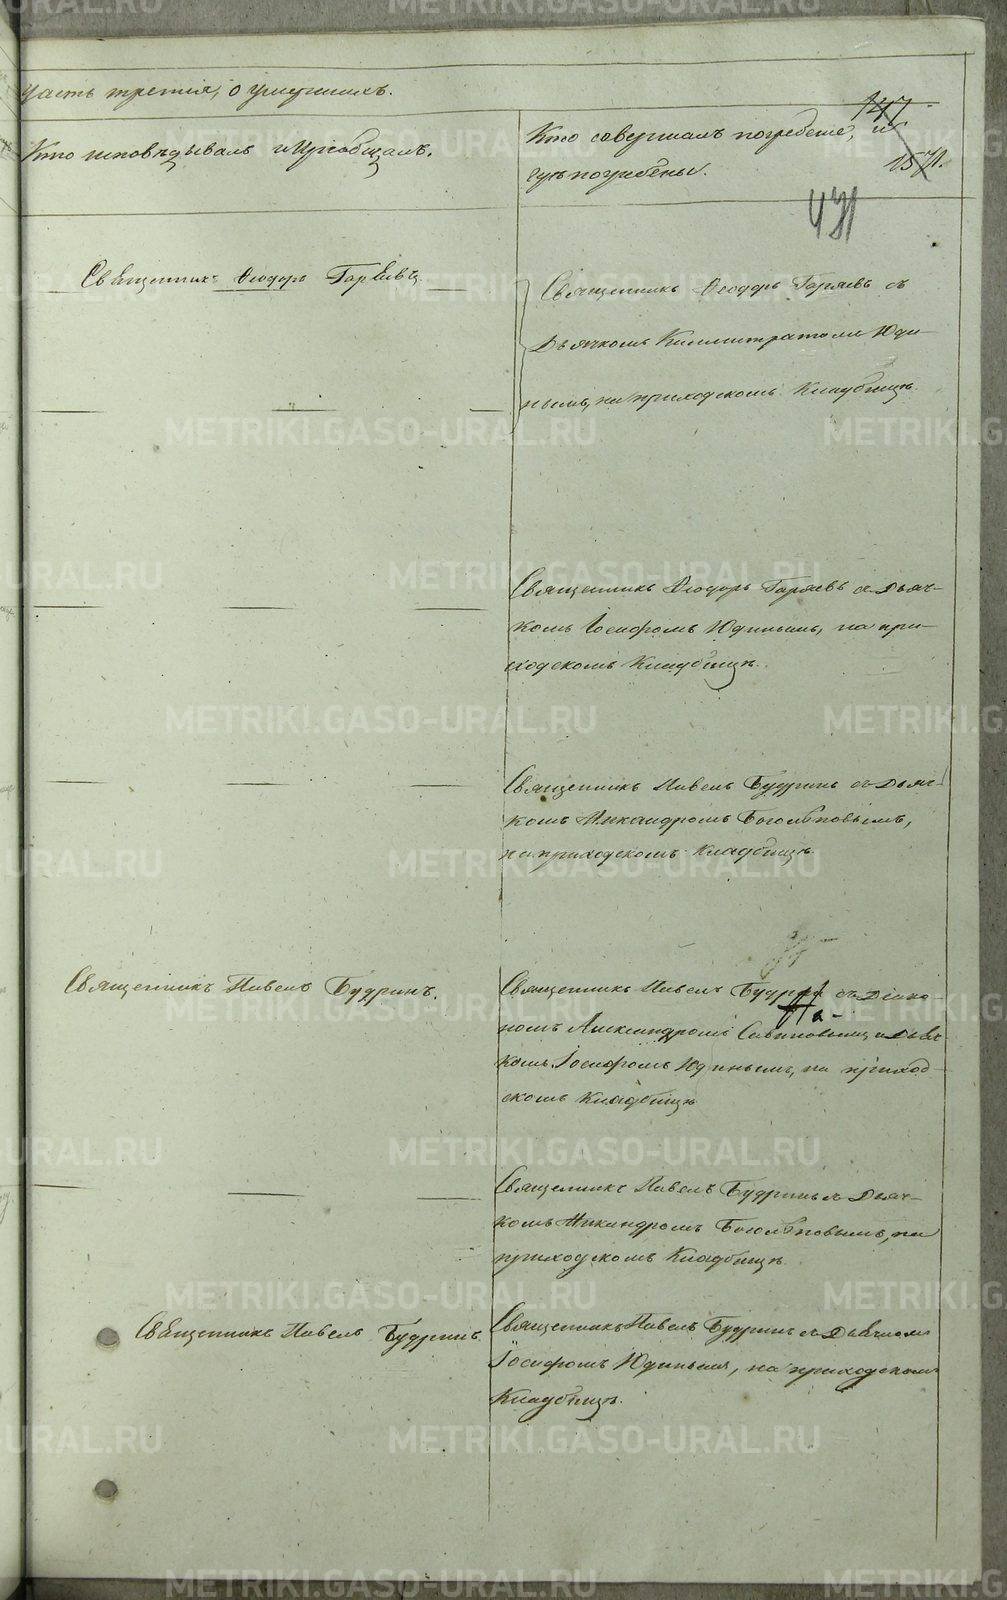 часть третія, о умершихъ.
147
Кто исповѣдывалъ и пріобщалъ.
Кто совершалъ погребеніе, и
гдѣ погребены.
157.
431
Священникъ Ѳеодоръ Гаряевъ
Священникъ Ѳеодоръ Гаряевъ съ
Дьячкомъ Юди-
нымъ, на приходскомъ Кладбищѣ.
Священникъ Ѳеодоръ Гаряевъ съ Дьяч-
комъ Іосифомъ Юдинымъ, на при-
ходскомъ Кладбищѣ.
Священникъ Павелъ Будринъ съ Дьяч-
комъ Никандромъ Боголѣповымъ,
на приходскомъ Кладбищѣ.
Священникъ Павелъ Будринъ.
Священникъ Павелъ Будринъ съ Діако-
номъ Александромъ Савиновымъ и Дьяч-
комъ Іосифомъ Юдинымъ, на приход-
скомъ Кладбищѣ
Священникъ Павелъ Будринъ съ Дьяч-
комъ Никандромъ Боголѣповымъ, на
приходскомъ Кладбищѣ.
Священникъ Павелъ Будринъ.
Священникъ Павелъ Будринъ съ Дьячкомъ
Іосифомъ Юдинымъ, на приходскомъ
Кладбищѣ.
METRIKI.GASO-URAL.RU